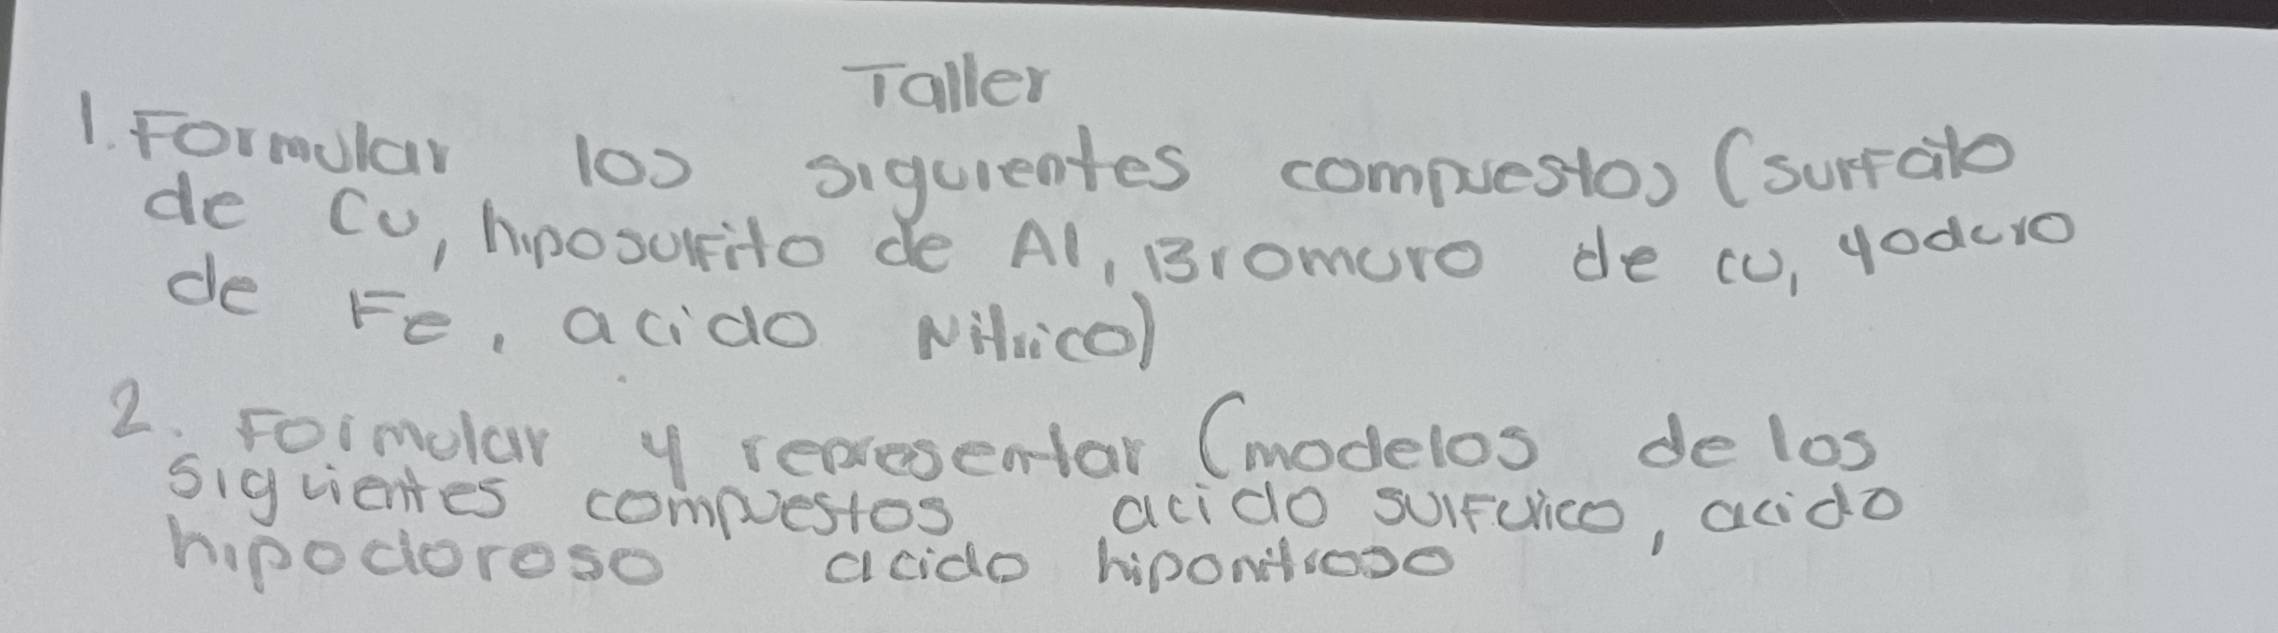 Taller
1. Formular los siguientes compuestos (surfato
de Cu, hiposulfito de Al, Bromuro de cu, yoduro
de Fe, acido Nitrico)
2. Formular y representar (modelos de los
siguientes compuestos acido sulfurico, acido
hipocloroso acido hiponitroso